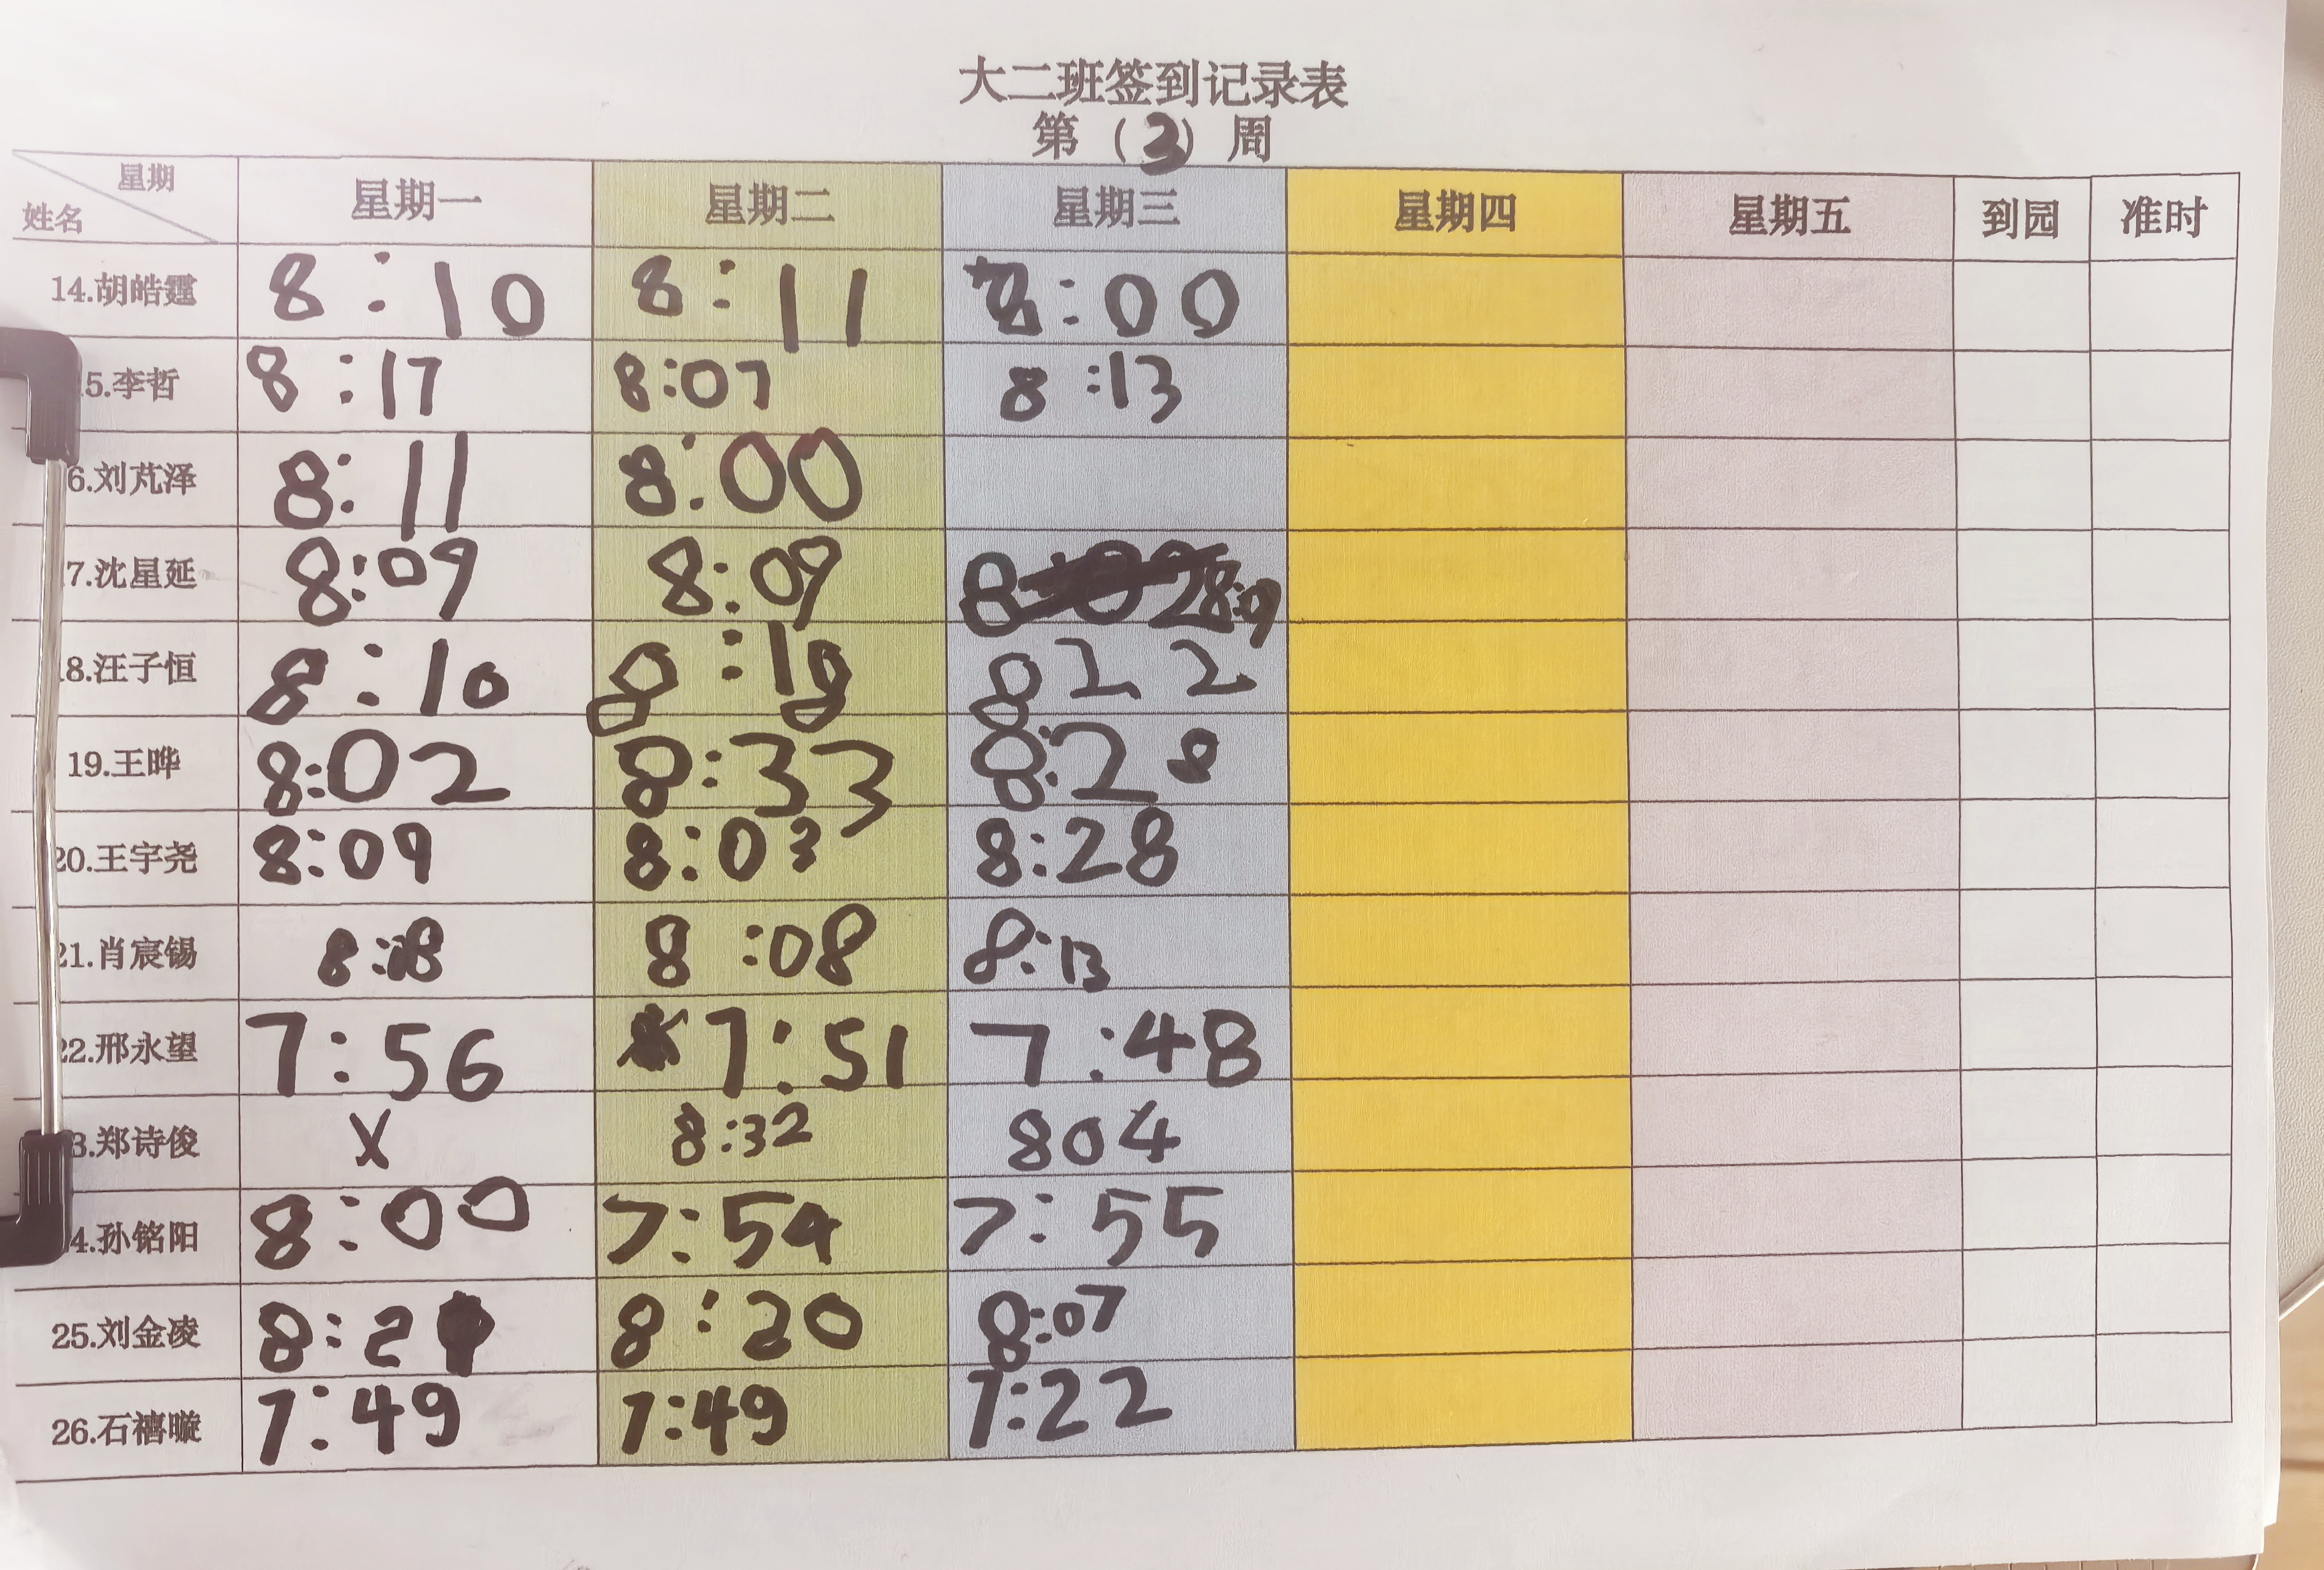 大二班签到记录表
第（3）周
星期 姓名 星期一 星期二 星期三 星期四 星期五 到园 准时
14.胡皓霆 8:10 8:11 8:00
5.李哲 8:17 8:07 8:13
6.刘芃泽 8:11 8:00
7.沈星延 8:09 8:09 8:09
8.汪子恒 8:10 8:18 8 22
19.王晔 8:02 8:33 8:28
20.王宇尧 8:09 8:03 8:28
21.肖宸锡 8:08 8:13
22.邢永望 7:56 7:51 7:48
3.郑诗俊 X 8:32 804
4.孙铭阳 8:00 7:54 7:55
25.刘金凌 8:2 8:20 8:07
26.石禧暶 7:49 7:49 7:22